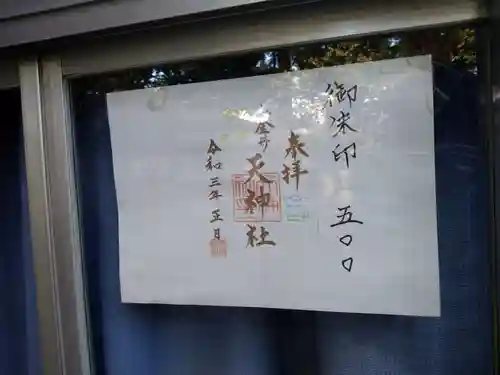 御朱印 五〇〇
奉拝
天神社
令和三年 正月